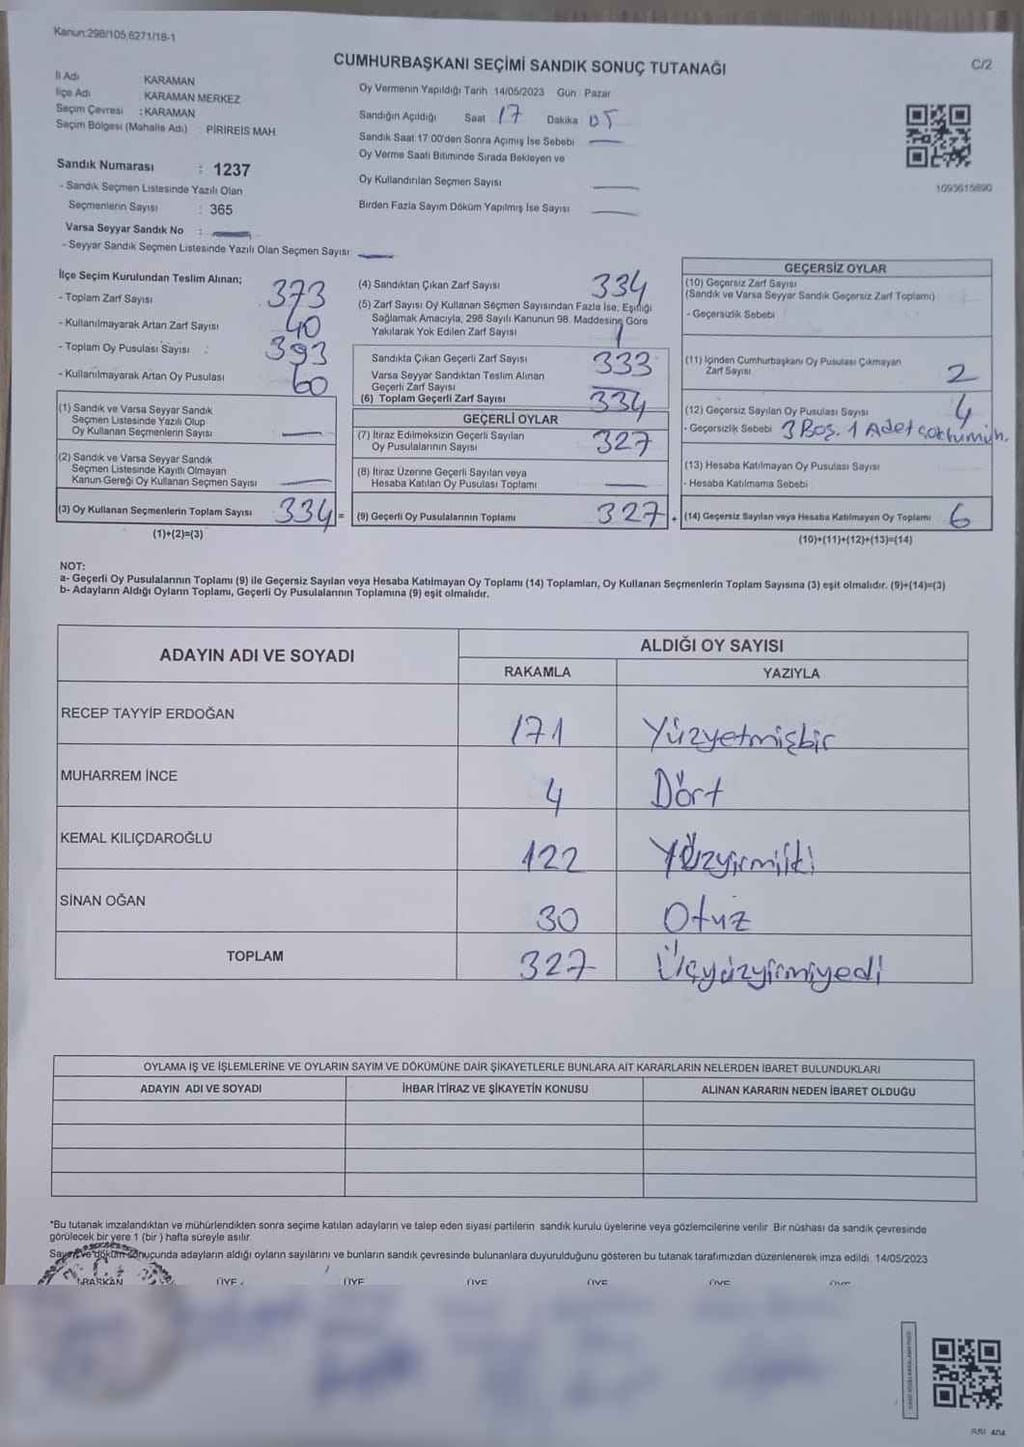 Kanun:298/105,6271/18-1
CUMHURBAŞKANI SEÇİMİ SANDIK SONUÇ TUTANAĞI
C/2
İl Adı KARAMAN
İlçe Adı KARAMAN MERKEZ
Seçim Çevresi : KARAMAN
Seçim Bölgesi (Mahalle Adı) : PİRİREİS MAH.
Oy Vermenin Yapıldığı Tarih 14/05/2023 Gün : Pazar
Sandığın Açıldığı Saat 17 Dakika
Sandık Saat 17:00'den Sonra Açımış İse Sebebi
Oy Verme Saati Bitiminde Sırada Bekleyen ve
Oy Kullandırılan Seçmen Sayısı
Birden Fazla Sayım Döküm Yapılmış İse Sayısı
1093615690
Sandık Numarası : 1237
- Sandık Seçmen Listesinde Yazılı Olan
Seçmenlerin Sayısı : 365
Varsa Seyyar Sandık No :
- Seyyar Sandık Seçmen Listesinde Yazılı Olan Seçmen Sayısı
İlçe Seçim Kurulundan Teslim Alınan;
- Toplam Zarf Sayısı 373
- Kullanılmayarak Artan Zarf Sayısı 40
- Toplam Oy Pusulası Sayısı : 393
- Kullanılmayarak Artan Oy Pusulası 60
(1) Sandık ve Varsa Seyyar Sandık
Seçmen Listesinde Yazılı Olup
Oy Kullanan Seçmenlerin Sayısı
(2) Sandık ve Varsa Seyyar Sandık
Seçmen Listesinde Kayıtlı Olmayan
Kanun Gereği Oy Kullanan Seçmen Sayısı
(3) Oy Kullanan Seçmenlerin Toplam Sayısı 334 =
(1)+(2)=(3)
(4) Sandıktan Çıkan Zarf Sayısı 334
(5) Zarf Sayısı Oy Kullanan Seçmen Sayısından Fazla İse, Eşitliği
Sağlamak Amacıyla, 298 Sayılı Kanunun 98. Maddesine Göre
Yakılarak Yok Edilen Zarf Sayısı 1
Sandıkta Çıkan Geçerli Zarf Sayısı 333
Varsa Seyyar Sandıktan Teslim Alınan
Geçerli Zarf Sayısı
(6) Toplam Geçerli Zarf Sayısı 334
GEÇERLİ OYLAR
(7) İtiraz Edilmeksizin Geçerli Sayılan
Oy Pusulalarının Sayısı 327
(8) İtiraz Üzerine Geçerli Sayılan veya
Hesaba Katılan Oy Pusulası Toplamı
(9) Geçerli Oy Pusulalarının Toplamı 327 +
GEÇERSİZ OYLAR
(10) Geçersiz Zarf Sayısı
(Sandık ve Varsa Seyyar Sandık Geçersiz Zarf Toplamı)
- Geçersizlik Sebebi
(11) İçinden Cumhurbaşkanı Oy Pusulası Çıkmayan
Zarf Sayısı 2
(12) Geçersiz Sayılan Oy Pusulası Sayısı 4
- Geçersizlik Sebebi 3 Boş. 1 Adet
(13) Hesaba Katılmayan Oy Pusulası Sayısı
- Hesaba Katılmama Sebebi
(14) Geçersiz Sayılan veya Hesaba Katılmayan Oy Toplamı 6
(10)+(11)+(12)+(13)=(14)
NOT:
a- Geçerli Oy Pusulalarının Toplamı (9) ile Geçersiz Sayılan veya Hesaba Katılmayan Oy Toplamı (14) Toplamları, Oy Kullanan Seçmenlerin Toplam Sayısına (3) eşit olmalıdır. (9)+(14)=(3)
b- Adayların Aldığı Oyların Toplamı, Geçerli Oy Pusulalarının Toplamına (9) eşit olmalıdır.
ADAYIN ADI VE SOYADI
ALDIĞI OY SAYISI
RAKAMLA YAZIYLA
RECEP TAYYİP ERDOĞAN 171 Yüzyetmişbir
MUHARREM İNCE 4 Dört
KEMAL KILIÇDAROĞLU 122 Yüzyirmiiki
SİNAN OĞAN 30 Otuz
TOPLAM 327 Üçyüzyirmiyedi
OYLAMA İŞ VE İŞLEMLERİNE VE OYLARIN SAYIM VE DÖKÜMÜNE DAİR ŞİKAYETLERLE BUNLARA AİT KARARLARIN NELERDEN İBARET BULUNDUKLARI
ADAYIN ADI VE SOYADI İHBAR İTİRAZ VE ŞİKAYETİN KONUSU ALINAN KARARIN NEDEN İBARET OLDUĞU
*Bu tutanak imzalandıktan ve mühürlendikten sonra seçime katılan adayların ve talep eden siyasi partilerin sandık kurulu üyelerine veya gözlemcilerine verilir. Bir nüshası da sandık çevresinde
görülecek bir yere 1 (bir ) hafta süreyle asılır.
Sayım ve döküm sonuçunda adayların aldığı oyların sayılarını ve bunların sandık çevresinde bulunanlara duyurulduğunu gösteren bu tutanak tarafımızdan düzenlenerek imza edildi. 14/05/2023
BAŞKAN ÜYE ÜYE ÜYE ÜYE ÜYE ÜYE